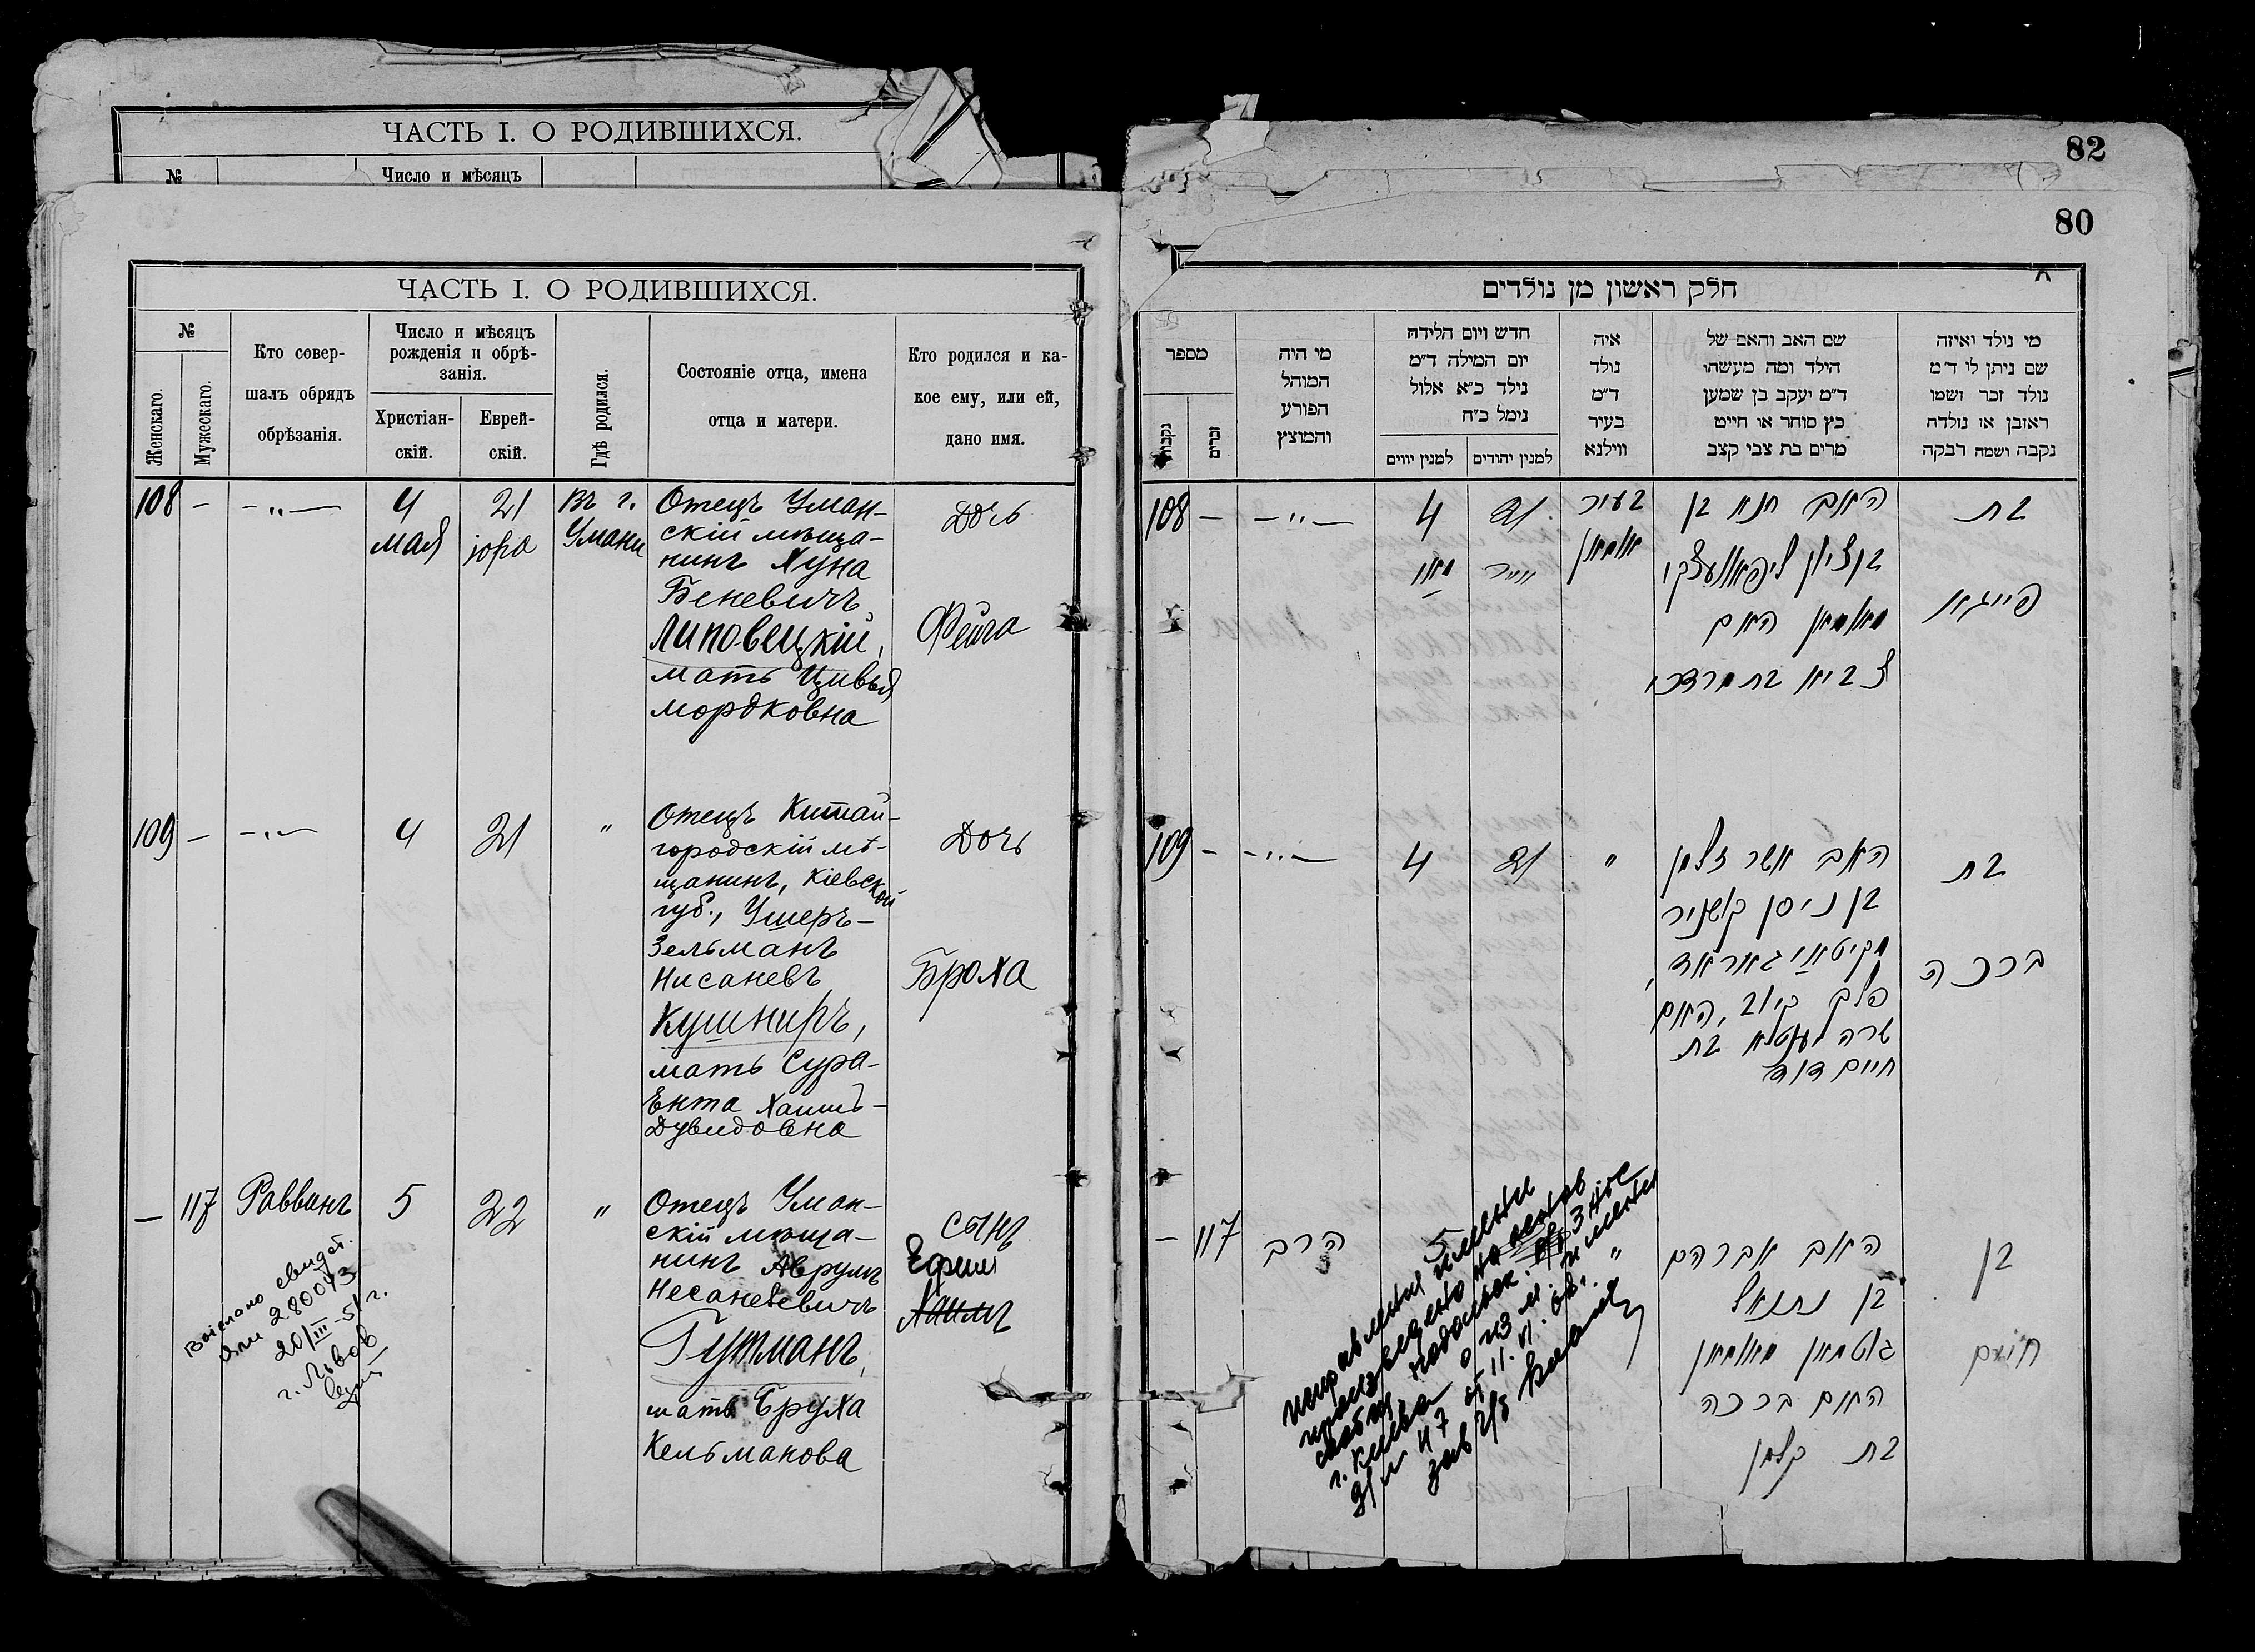 ЧАСТЬ I. О РОДИВШИХСЯ.
№
Число и мѣсяцъ
82
80
ЧАСТЬ I. О РОДИВШИХСЯ.
№
Женскаго.
Мужескаго.
Кто совер-
шалъ обрядъ
обрѣзанія.
Число и мѣсяцъ
рожденія и обрѣ-
занія.
Христіан-
скій.
Еврей-
скій.
Гдѣ родился.
Состояніе отца, имена
отца и матери.
Кто родился и ка-
кое ему, или ей,
дано имя.
108 — —„—
4
мая
21
іора
Въ г.
Умани
Отецъ Уман-
скій мѣща-
нинъ Хуна
Беневичъ
Липовецкій,
мать Цивья
Мордковна
Дочь
Фейга
109 — —„—
4
21
„
Отецъ Китай-
городскій мѣ-
щанинъ, Кіевской
губ., Ушеръ-
Зельманъ
Нисаневъ
Кушниръ,
мать Сура-
Ента Хаимъ-
Дувидовна
Дочь
Броха
— 117 Раввинъ
5
22
„
Отецъ Уман-
скій мѣща-
нинъ Аврумъ
Несаневичъ
Гутманъ,
мать Бруха
Кельманова
Сынъ
Ефим
Хаимъ
Выслано свидет.
280043
20/III-51 г.
г. Львов
חלק ראשון מן נולדים
מספר
נקבות
זכרים
מי היה
המוהל
הפורע
והמוצץ
חדש ויום הלידה
יום המילה ד״מ
נילד כ״א אלול
נימל כ״ח
למנין יווים
למנין יהודים
איה
נולד
ד״מ
בעיר
ווילנא
שם האב והאם של
הילד ומה מעשהו
ד״מ יעקב בן שמען
כץ סוחר או חייט
מרים בת צבי קצב
מי נולד ואיזה
שם ניתן לו ד״מ
נולד זכר ושמו
ראובן או נולדה
נקבה ושמה רבקה
108 — —„—
4
מאי
21
אייר
בעיר
אומאן
האב חנא בן
בן ציון ליפאוועצקי
מאומאן האם
צביא בת מרדכי
בת
פייגא
109 — —„—
4
21
„
האב אשר זלמן
בן ניסן קושניר
מקיטאיגאראד
פלך קיוב, האם
שרה יענטא בת
חיים דוד
בת
ברכה
— 117 הרב
„
האב אברהם
בן נתנאל
גוטמאן מאומאן
האם ברכה
בת קלמן
בן
חיים
Исправления имени
г. Киева